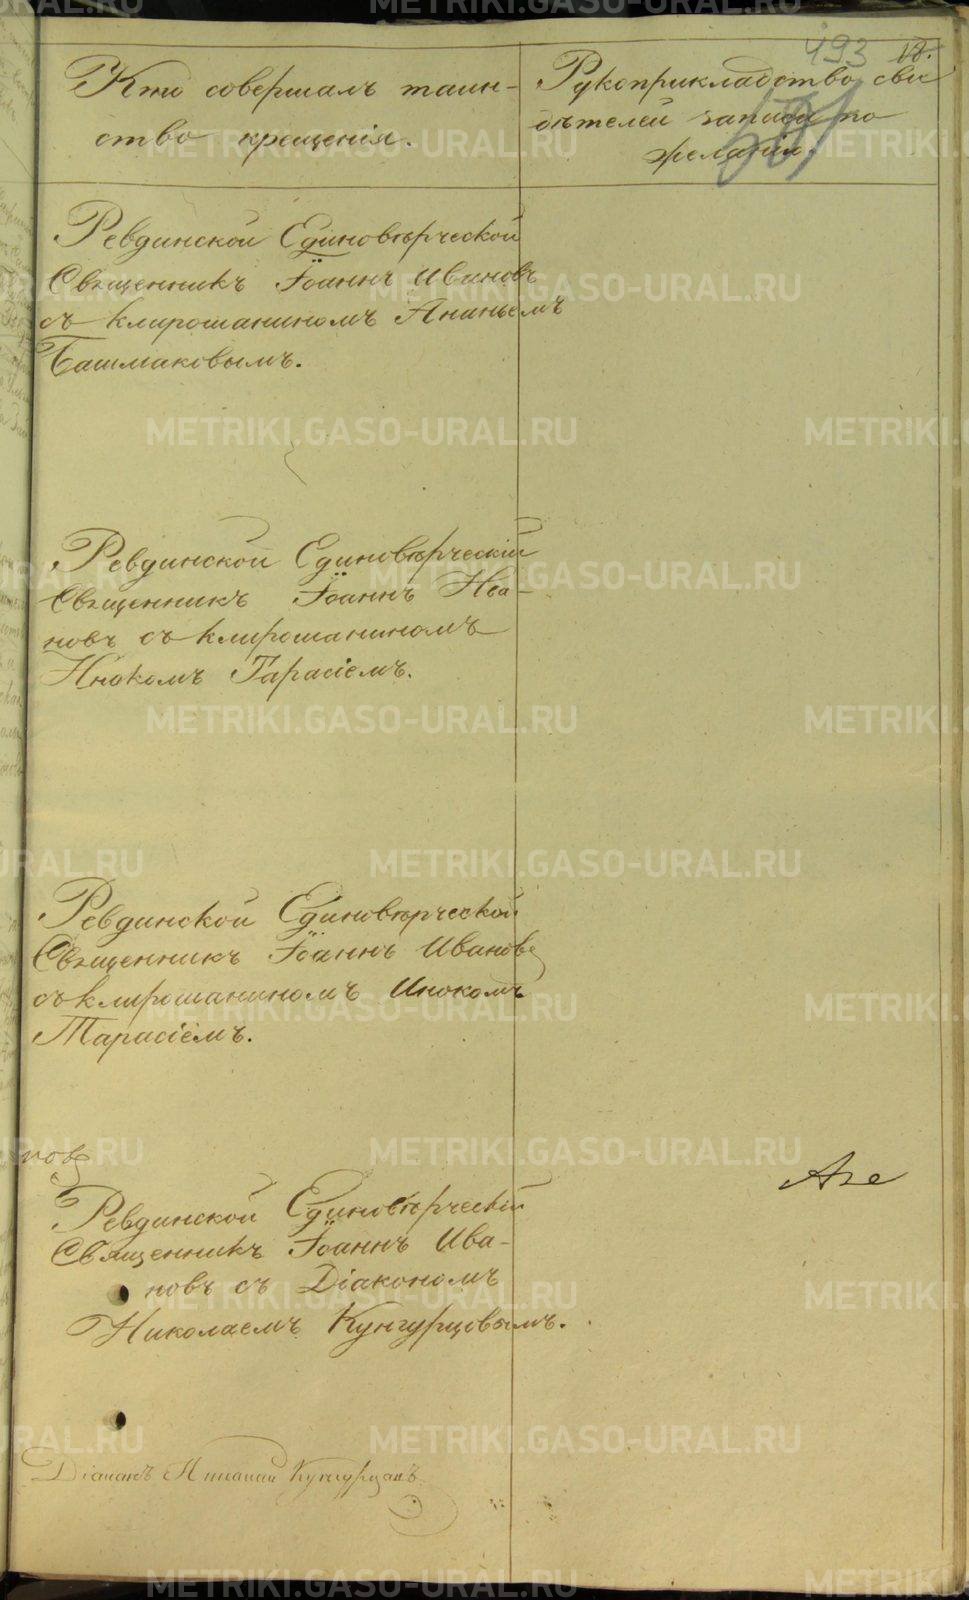 493 18.
Кто совершалъ таин-
ство крещенія.
Рукоприкладство сви
дѣтелей записи по
желанію.
Ревдинской Единовѣрческой
Священникъ Іоаннъ Ивановъ
съ клирошаниномъ Ананьемъ
Башмаковымъ.
Ревдинской Единовѣрческій
Священникъ Іоаннъ Ива-
новъ съ клирошаниномъ
Инокомъ Тарасіемъ.
Ревдинской Единовѣрческой
Священникъ Іоаннъ Ивановъ
съ клирошаниномъ Инокомъ
Тарасіемъ.
новъ
Ревдинской Единовѣрческій
Священникъ Іоаннъ Ива-
новъ съ Діакономъ
Николаемъ Кунгурцовымъ.
Діаконъ Николай Кунгурцовъ
METRIKI.GASO-URAL.RU